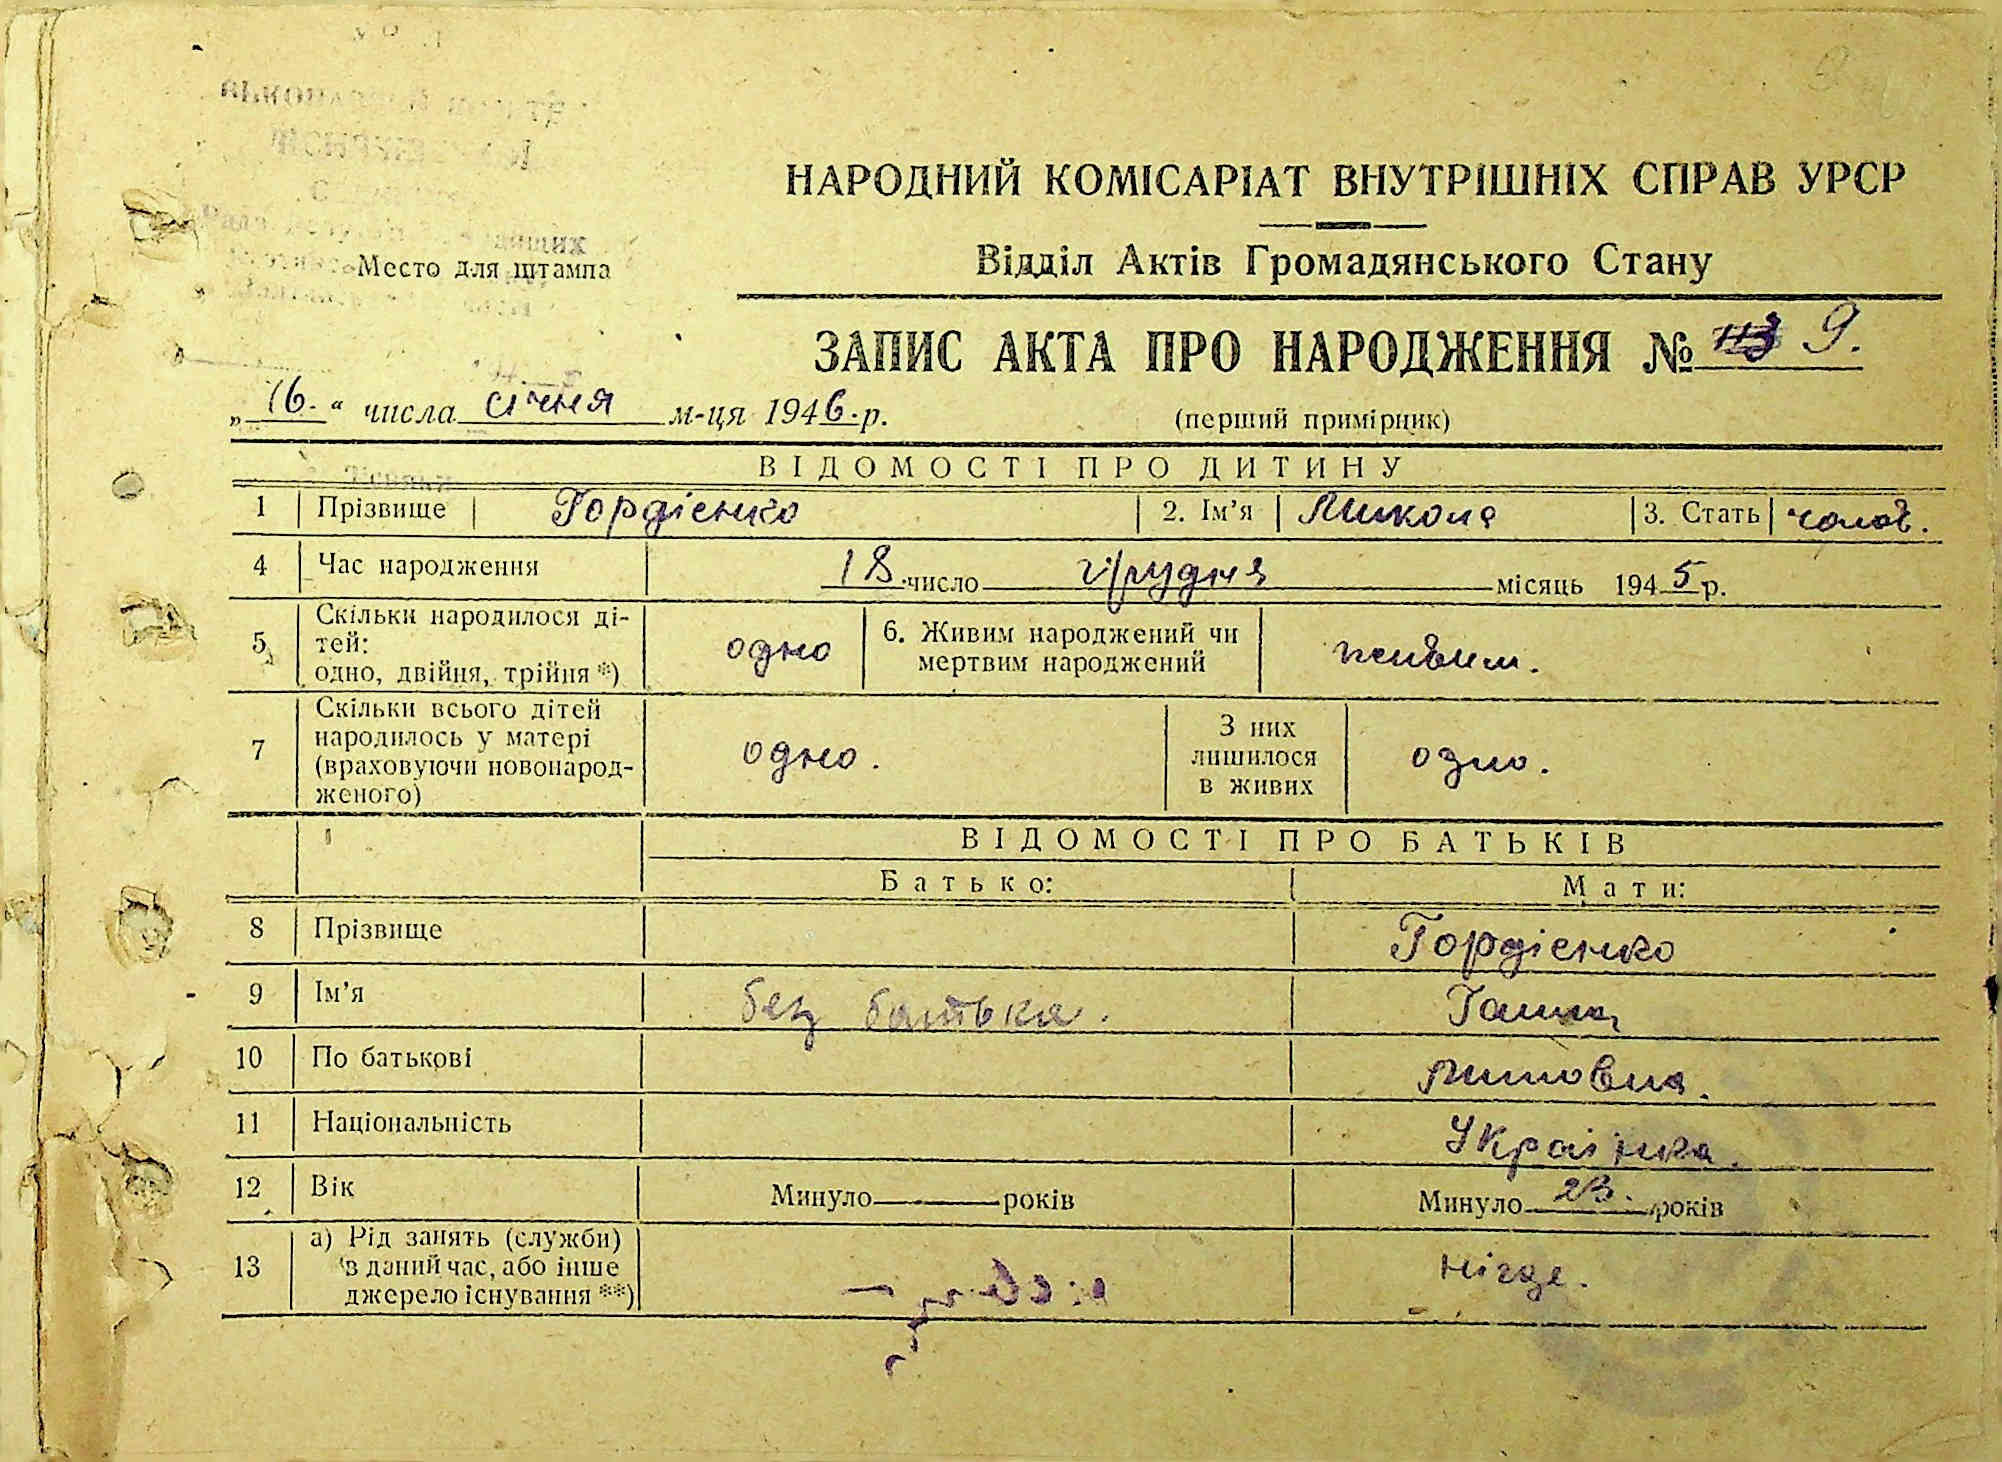 НАРОДНИЙ КОМІСАРІАТ ВНУТРІШНІХ СПРАВ УРСР
Відділ Актів Громадянського Стану
Место для штампа
ЗАПИС АКТА ПРО НАРОДЖЕННЯ № 9.
„16.“ числа січня м-ця 1946.р.
(перший примірник)
ВІДОМОСТІ ПРО ДИТИНУ
1 Прізвище Гордієнко 2. Ім'я Микола 3. Стать чолов.
4 Час народження 18 число грудня місяць 1945 р.
5 Скільки народилося ді-
тей:
одно, двійня, трійня *)
одно
6. Живим народжений чи
мертвим народжений
живим.
7 Скільки всього дітей
народилось у матері
(враховуючи новонарод-
женого)
одно.
З них
лишилося
в живих
одно.
ВІДОМОСТІ ПРО БАТЬКІВ
Батько: Мати:
8 Прізвище Гордієнко
9 Ім'я без батька. Ганна
10 По батькові
11 Національність Українка.
12 Вік Минуло років Минуло 23. років
13 а) Рід занять (служби)
в даний час, або інше
джерело існування **)
нігде.